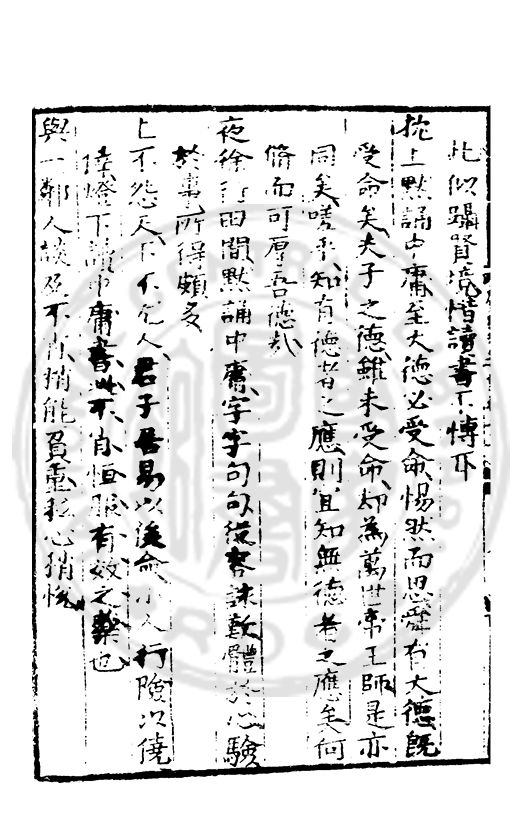 此似躡賢境惜讀書不博耳
枕上默誦中庸至大德必受命惕然而思舜有大德旣
受命矣夫子之德雖未受命却為萬世帝王師是亦
同矣嗟乎知有德者之應則宜知無德者之應矣何
脩而可厚吾德哉
夜徐行田間默誦中庸字字句句從容詠歎體於心驗
於事所得頗多
上不怨天下不尤人君子居易以俟命小人行險以徼
倖燈下讀中庸書此不肖恒服有效之藥也
與一鄰人談及不肖稍能負重私心稍悅